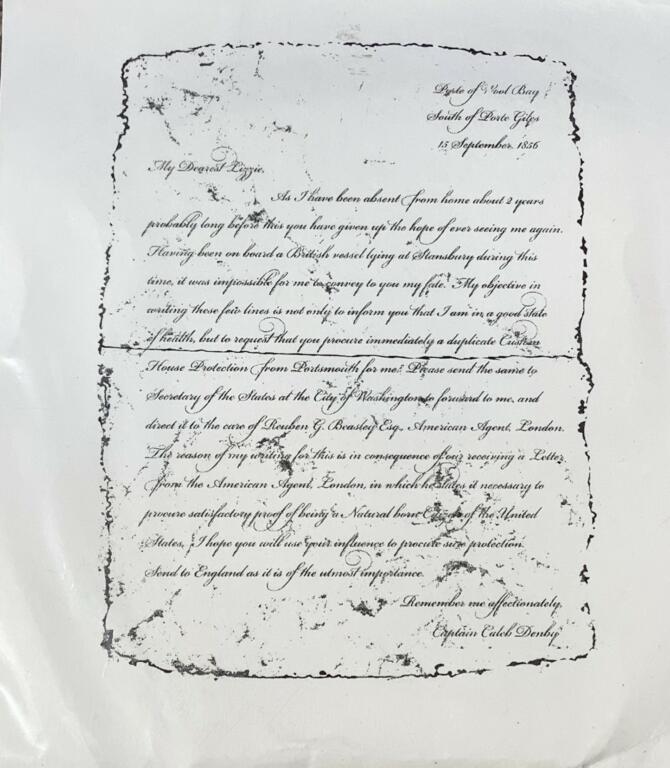 Porte of Wool Bay
South of Porte Giles
15 September, 1856
My Dearest Lizzie,
As I have been absent from home about 2 years
probably long before this you have given up the hope of ever seeing me again.
Having been on board a British vessel lying at Stansbury during this
time, it was impossible for me to convey to you my fate. My objective in
writing these few lines is not only to inform you that I am in a good state
of health, but to request that you procure immediately a duplicate Custom
House Protection from Portsmouth for me. Please send the same to
Secretary of the States at the City of Washington to forward to me, and
direct it to the care of Reuben G. Beasley Esq., American Agent, London.
The reason of my writing for this is in consequence of our receiving a Letter
from the American Agent, London, in which he states it necessary to
procure satisfactory proof of being a Natural born Citizen of the United
States, I hope you will use your influence to procure sure protection.
Send to England as it is of the utmost importance.
Remember me affectionately,
Captain Caleb Denby